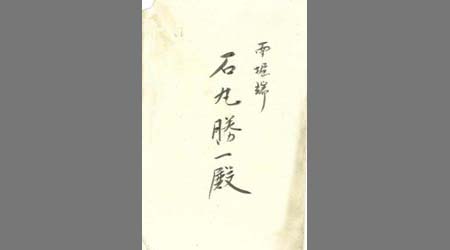 西堀端
石丸勝一殿